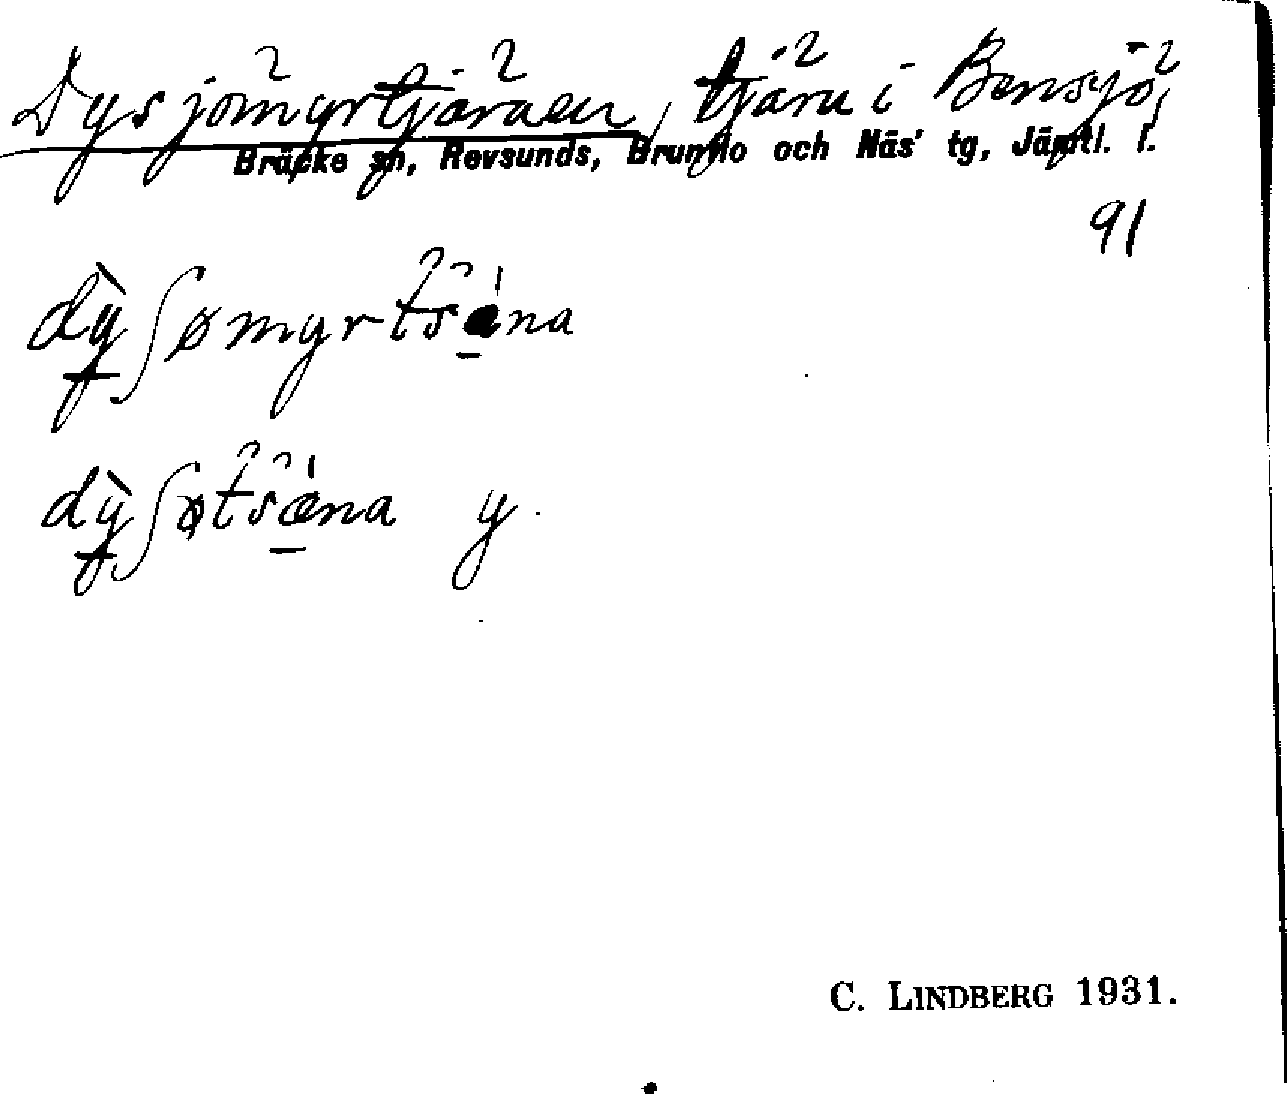 Dysjömyrtjärnen, tjärn i Bensjö,
Bräcke sn, Revsunds, Brunflo och Näs' tg, Jämtl. l.
91
dỳʃømyrtsæ̀na
dỳʃøtsæ̀na y
C. LINDBERG 1931.